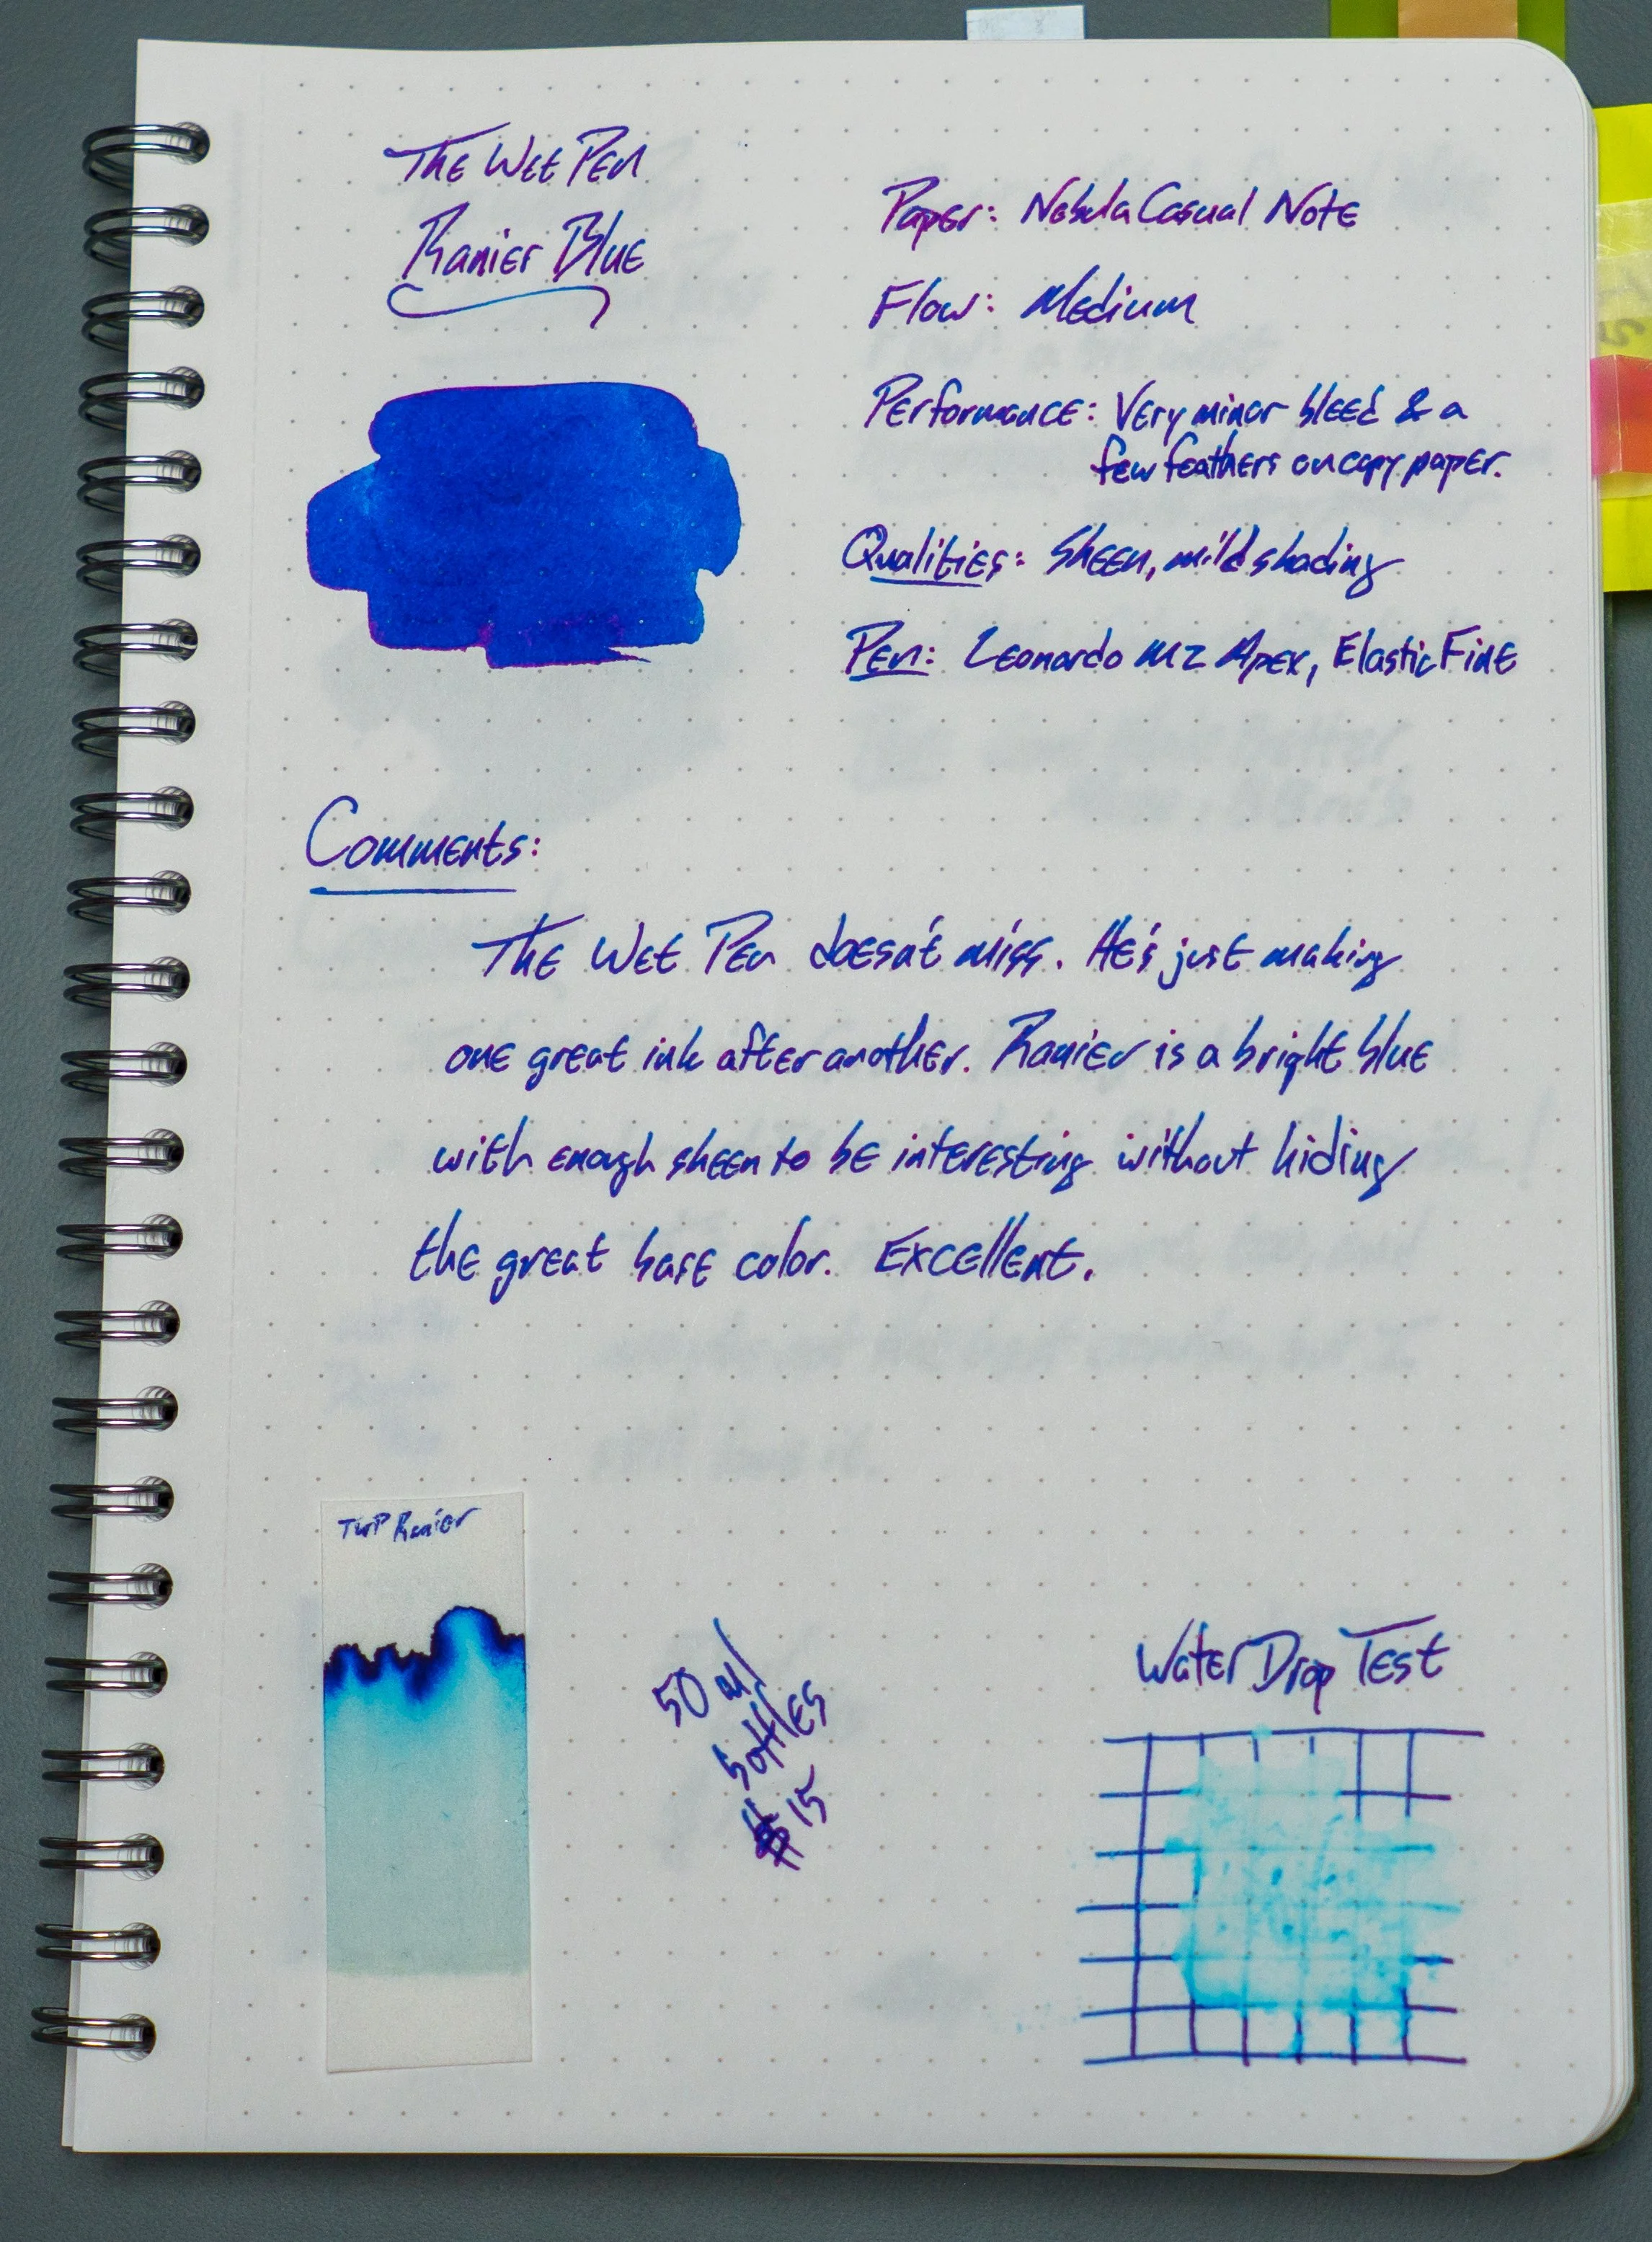 The Wet Pen
Ranier Blue
Paper: Nebula Casual Note
Flow: Medium
Performance: Very minor bleed & a
few feathers on copy paper.
Qualities: Sheen, mild shading
Pen: Leonardo MZ Apex, Elastic Fine
Comments:
The Wet Pen doesn't miss. He's just making
one great ink after another. Ranier is a bright blue
with enough sheen to be interesting without hiding
the great base color. Excellent.
TWP Ranier
50 ml
bottles
$15
Water Drop Test